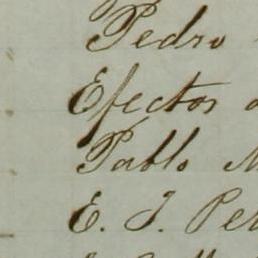 Pedro
Efectos
Pablo M
E. J. Per